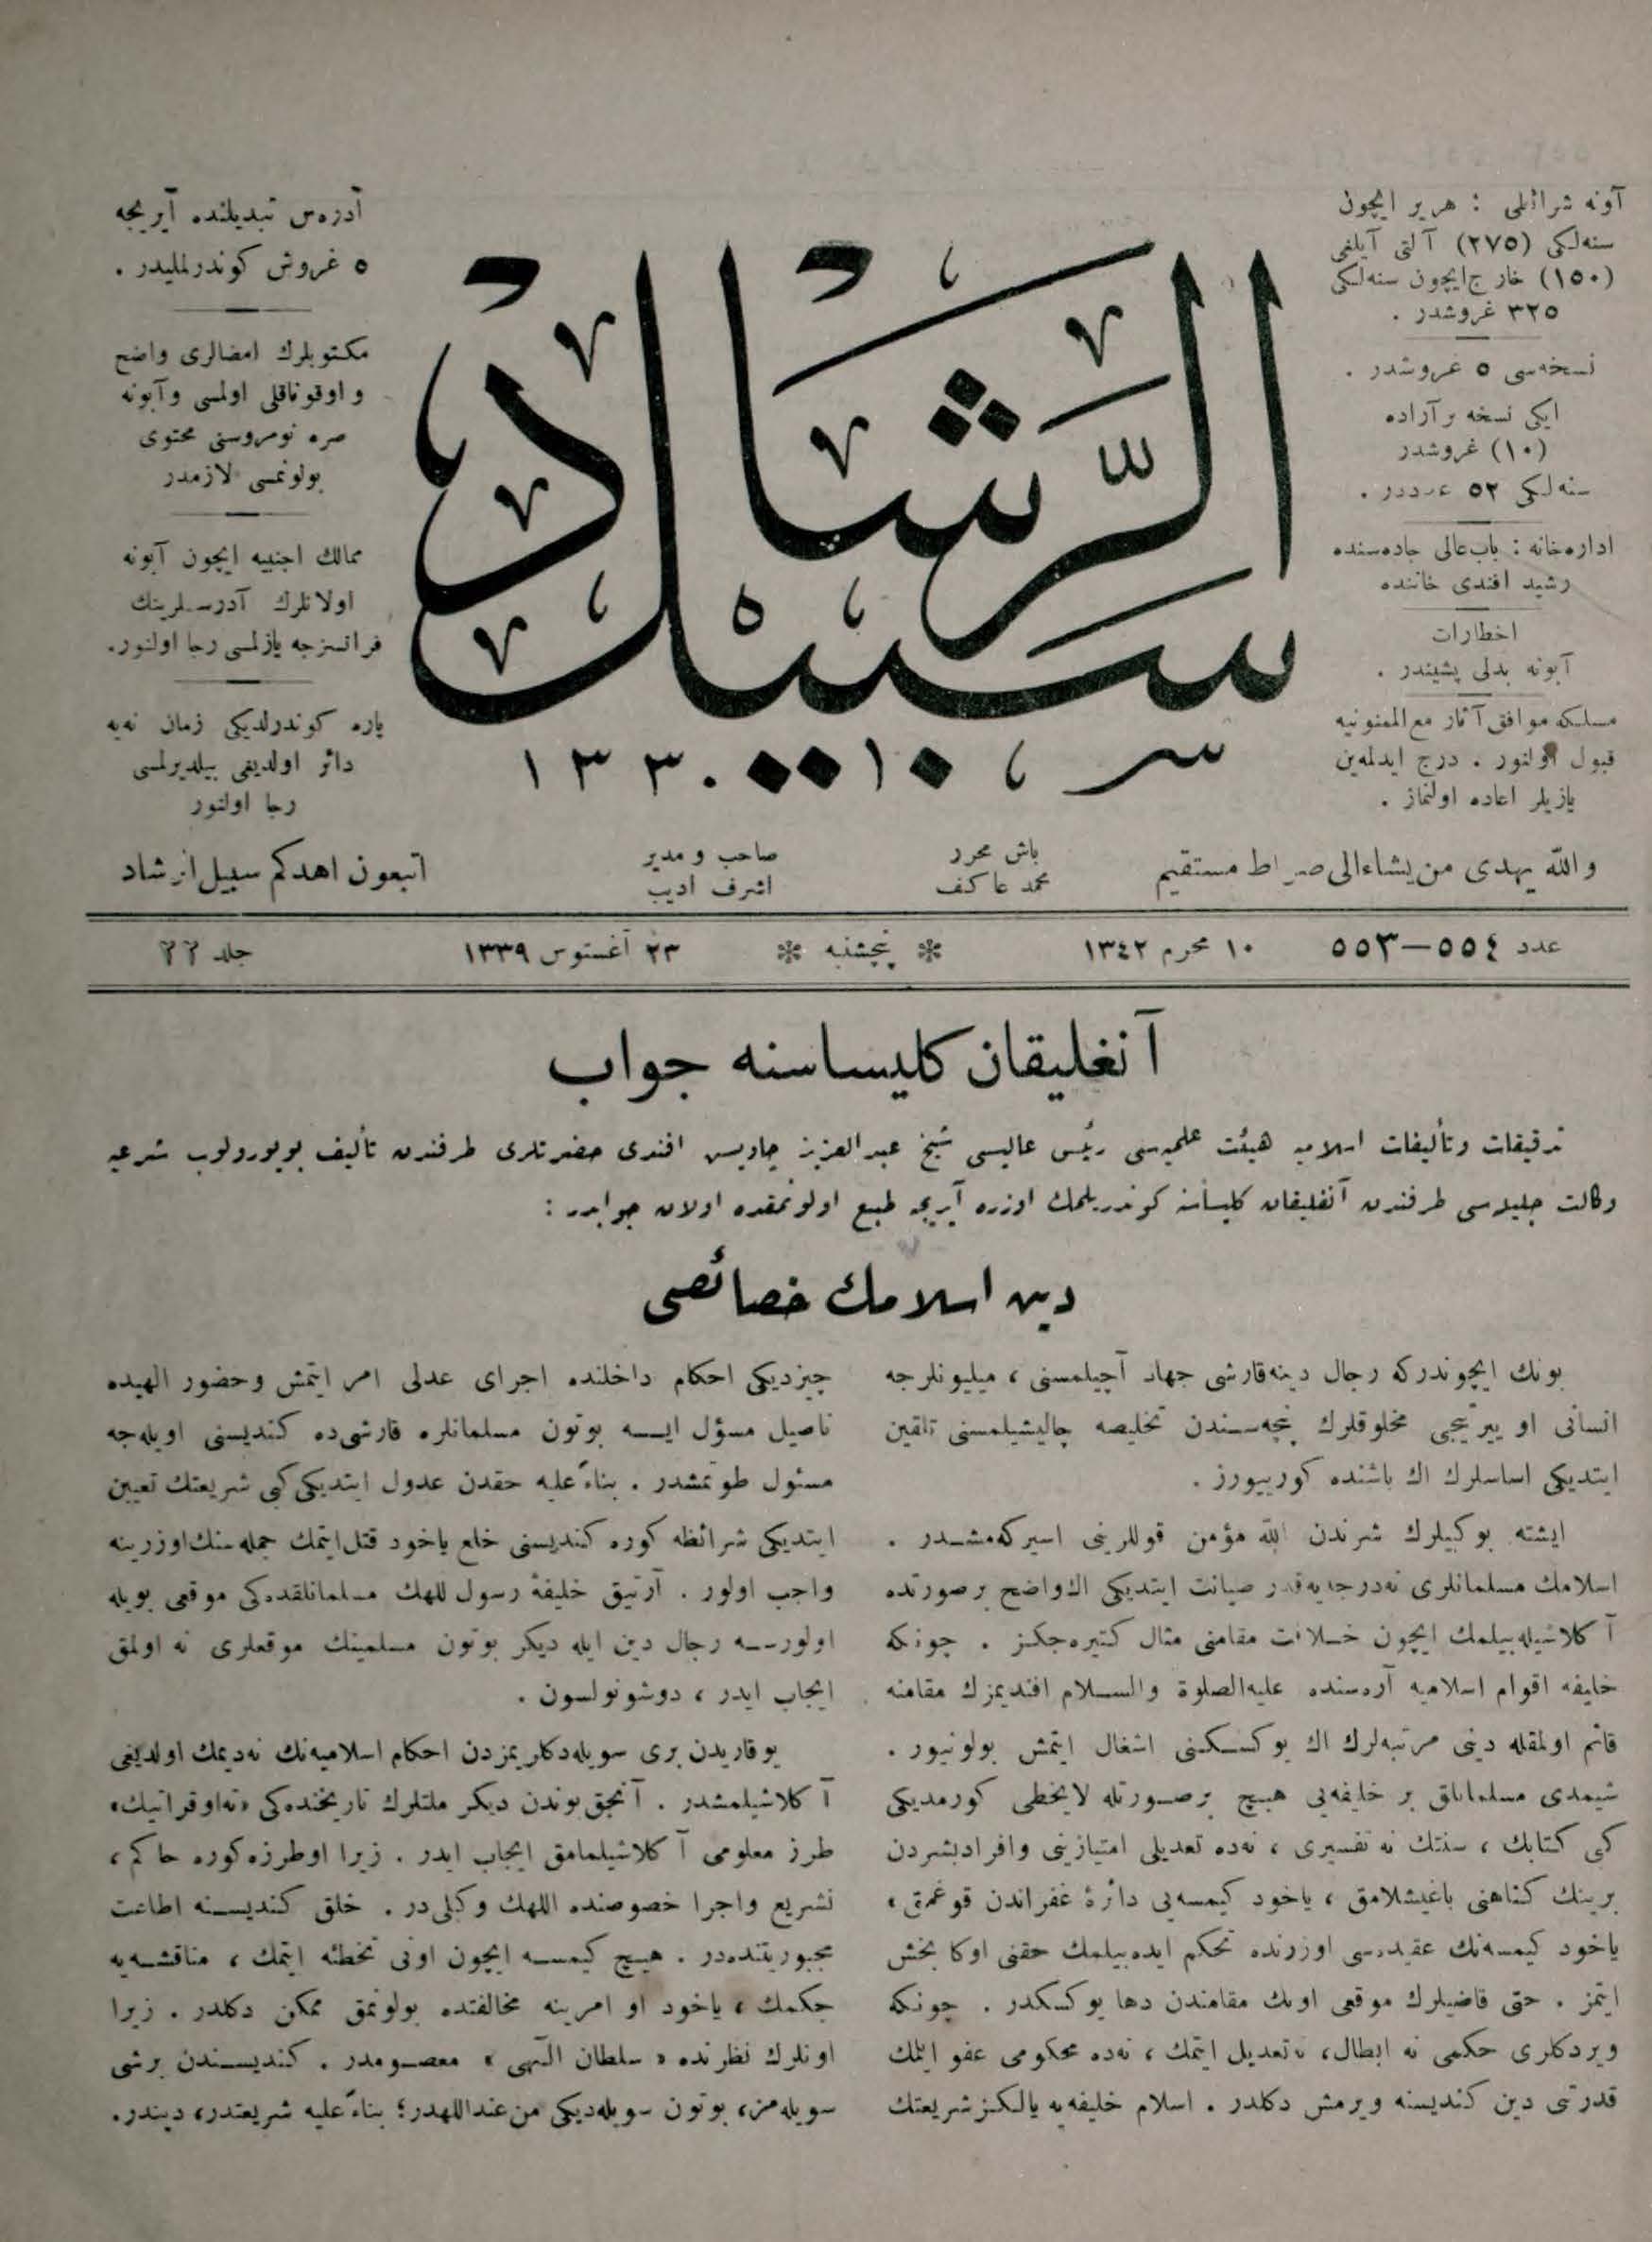 آبونه شرائطى : هر ير ايچون
سنه‌لكى (٢٧٥) آلتى آيلغى
(١٥٠) خارج ايچون سنه‌لكى
٣٢٥ غروشدر .
نسخه‌سى ٥ غروشدر .
ايكى نسخه بر آراده
(١٠) غروشدر
سنه‌لكى ٥٢ عدددر .
اداره‌خانه : باب‌عالى جاده‌سنده
رشيد افندى خاننده
اخطارات
آبونه بدلى پشيندر .
مسلكه موافق آثار مع‌الممنونيه
قبول اولنور . درج ايدلمه‌ين
يازيلر اعاده اولنماز .
سبيل الرشاد
١٣٣٠
آدره‌س تبديلنده آيريجه
٥ غروش كوندرلمليدر .
مكتوبلرك امضالرى واضح
و اوقوناقلى اولمسى و آبونه
صره نومروسنى محتوى
بولونمسى لازمدر
ممالك اجنبيه ايچون آبونه
اولانلرك آدرسلرينك
فرانسزجه يازلمسى رجا اولنور.
پاره كوندرلديكى زمان نه‌يه
دائر اولديغى بيلديرلمسى
رجا اولنور
والله يهدى من يشاءالى صراط مستقيم
باش محرر
محمد عاكف
صاحب و مدير
اشرف اديب
اتبعون اهدكم سبيل الرشاد
عدد ٥٥٤—٥٥٣ ١٠ محرم ١٣٤٢ * پنجشنبه * ٢٣ آغستوس ١٣٣٩ جلد ٢٢
آنغليقان كليساسنه جواب
تدقيقات و تأليفات اسلاميه هيئت علميه‌سى رئيس عاليسى شيخ عبدالعزيز چاويس افندى حضرتلرى طرفندن تأليف بويورولوب شرعيه
وكالت جليله‌سى طرفندن آنغليقان كليساسنه كوندريلمك اوزره آيريجه طبع اولونمقده اولان جوابدر :
دين اسلامك خصائصى
بونك ايچوندركه رجال دينه‌قارشى جهاد آچيلمسنى ، ميليونلرجه
انسانى او ييرتيجى مخلوقلرك پنچه‌سندن تخليصه چاليشيلمسنى تلقين
ايتديكى اساسلرك اك باشنده كوريبورز .
ايشته بوكبيلرك شرندن الله مؤمن قوللرينى اسيركه‌مشدر .
اسلامك مسلمانلرى نه‌درجه‌يه‌قدر صيانت ايتديكى اك‌واضح برصورتده
آكلاشيله‌بيلمك ايچون خلافت مقامنى مثال كتيره‌جكز . چونكه
خليفه اقوام اسلاميه آره‌سنده عليه‌الصلوة والسلام افنديمزك مقامنه
قائم اولمقله دينى مرتبه‌لرك اك يوكسكنى اشغال ايتمش بولونيور .
شيمدى مسلمانلق بر خليفه‌يى هيچ برصورتله لايخطى كورمديكى
كبى كتابك ، سنتك نه تفسيرى ، نه‌ده تعديلى امتيازينى وافرادبشردن
برينك كناهنى باغيشلامق ، ياخود كيمسه‌يى دائرۀ غفراندن قوغمق ،
ياخود كيمسه‌نك عقيده‌سى اوزرنده تحكم ايده‌بيلمك حقنى اوكا بخش
ايتمز . حتى قاضيلرك موقعى اونك مقامندن دها يوكسكدر . چونكه
ويردكلرى حكمى نه ابطال، نه‌تعديل ايتمك ، نه‌ده محكومى عفو ايتمك
قدرتنى دين كنديسنه ويرمش دكلدر . اسلام خليفه‌يه يالكز شريعتك
چيزديكى احكام داخلنده اجراى عدلى امر ايتمش وحضور الهيده
ناصيل مسؤل ايسه بوتون مسلمانلره قارشى‌ده كنديسنى اويله‌جه
مسئول طوتمشدر . بناءً عليه حقدن عدول ايتديكى كبى شريعتك تعيين
ايتديكى شرائطه كوره كنديسنى خلع ياخود قتل‌ايتمك جمله‌سنك‌اوزرينه
واجب اولور . آرتيق خليفۀ رسول اللهك مسلمانلقده‌كى موقعى بويله
اولورسه رجال دين ايله ديكر بوتون مسلمينك موقعلرى نه اولمق
ايجاب ايدر ، دوشونولسون .
يوقاريدن برى سويله‌دكلريمزدن احكام اسلاميه‌نك نه‌ديمك اولديغى
آكلاشيلمشدر . آنجق بوندن ديكر ملتلرك تاريخنده‌كى «ته‌اوقراتيك»
طرز معلومى آكلاشيلمامق ايجاب ايدر . زيرا اوطرزه كوره حاكم ،
تشريع واجرا خصوصنده اللهك وكيلى‌در . خلق كنديسنه اطاعت
مجبوريتنده‌در . هيچ كيمسه ايچون اونى تخطئه ايتمك ، مناقشه‌يه
چكمك ، ياخود او امرينه مخالفتده بولونمق ممكن دكلدر . زيرا
اونلرك نظرنده « سلطان الٓهى » معصومدر . كنديسندن برشى
سويله‌مز، بوتون سويله‌ديكى من عنداللهدر؛ بناءً عليه شريعتدر، ديندر.